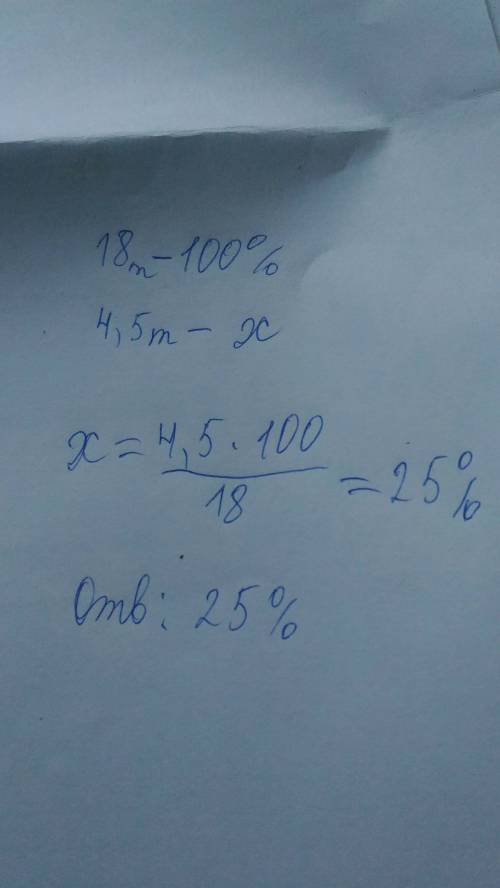 18т - 100%
4,5т - х
х = 4,5 · 100 / 18 = 25%
Отв: 25%